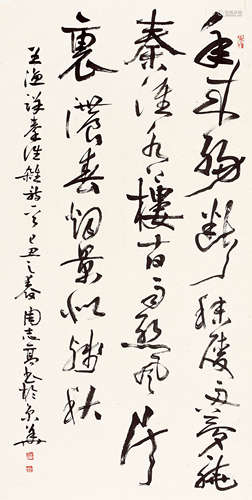 年來腸斷秣陵舟夢繞
秦淮水上樓十日雨絲風片
裏濃春烟景似殘秋
王漁洋秦淮雜詩一首己丑之春周志高書於京華